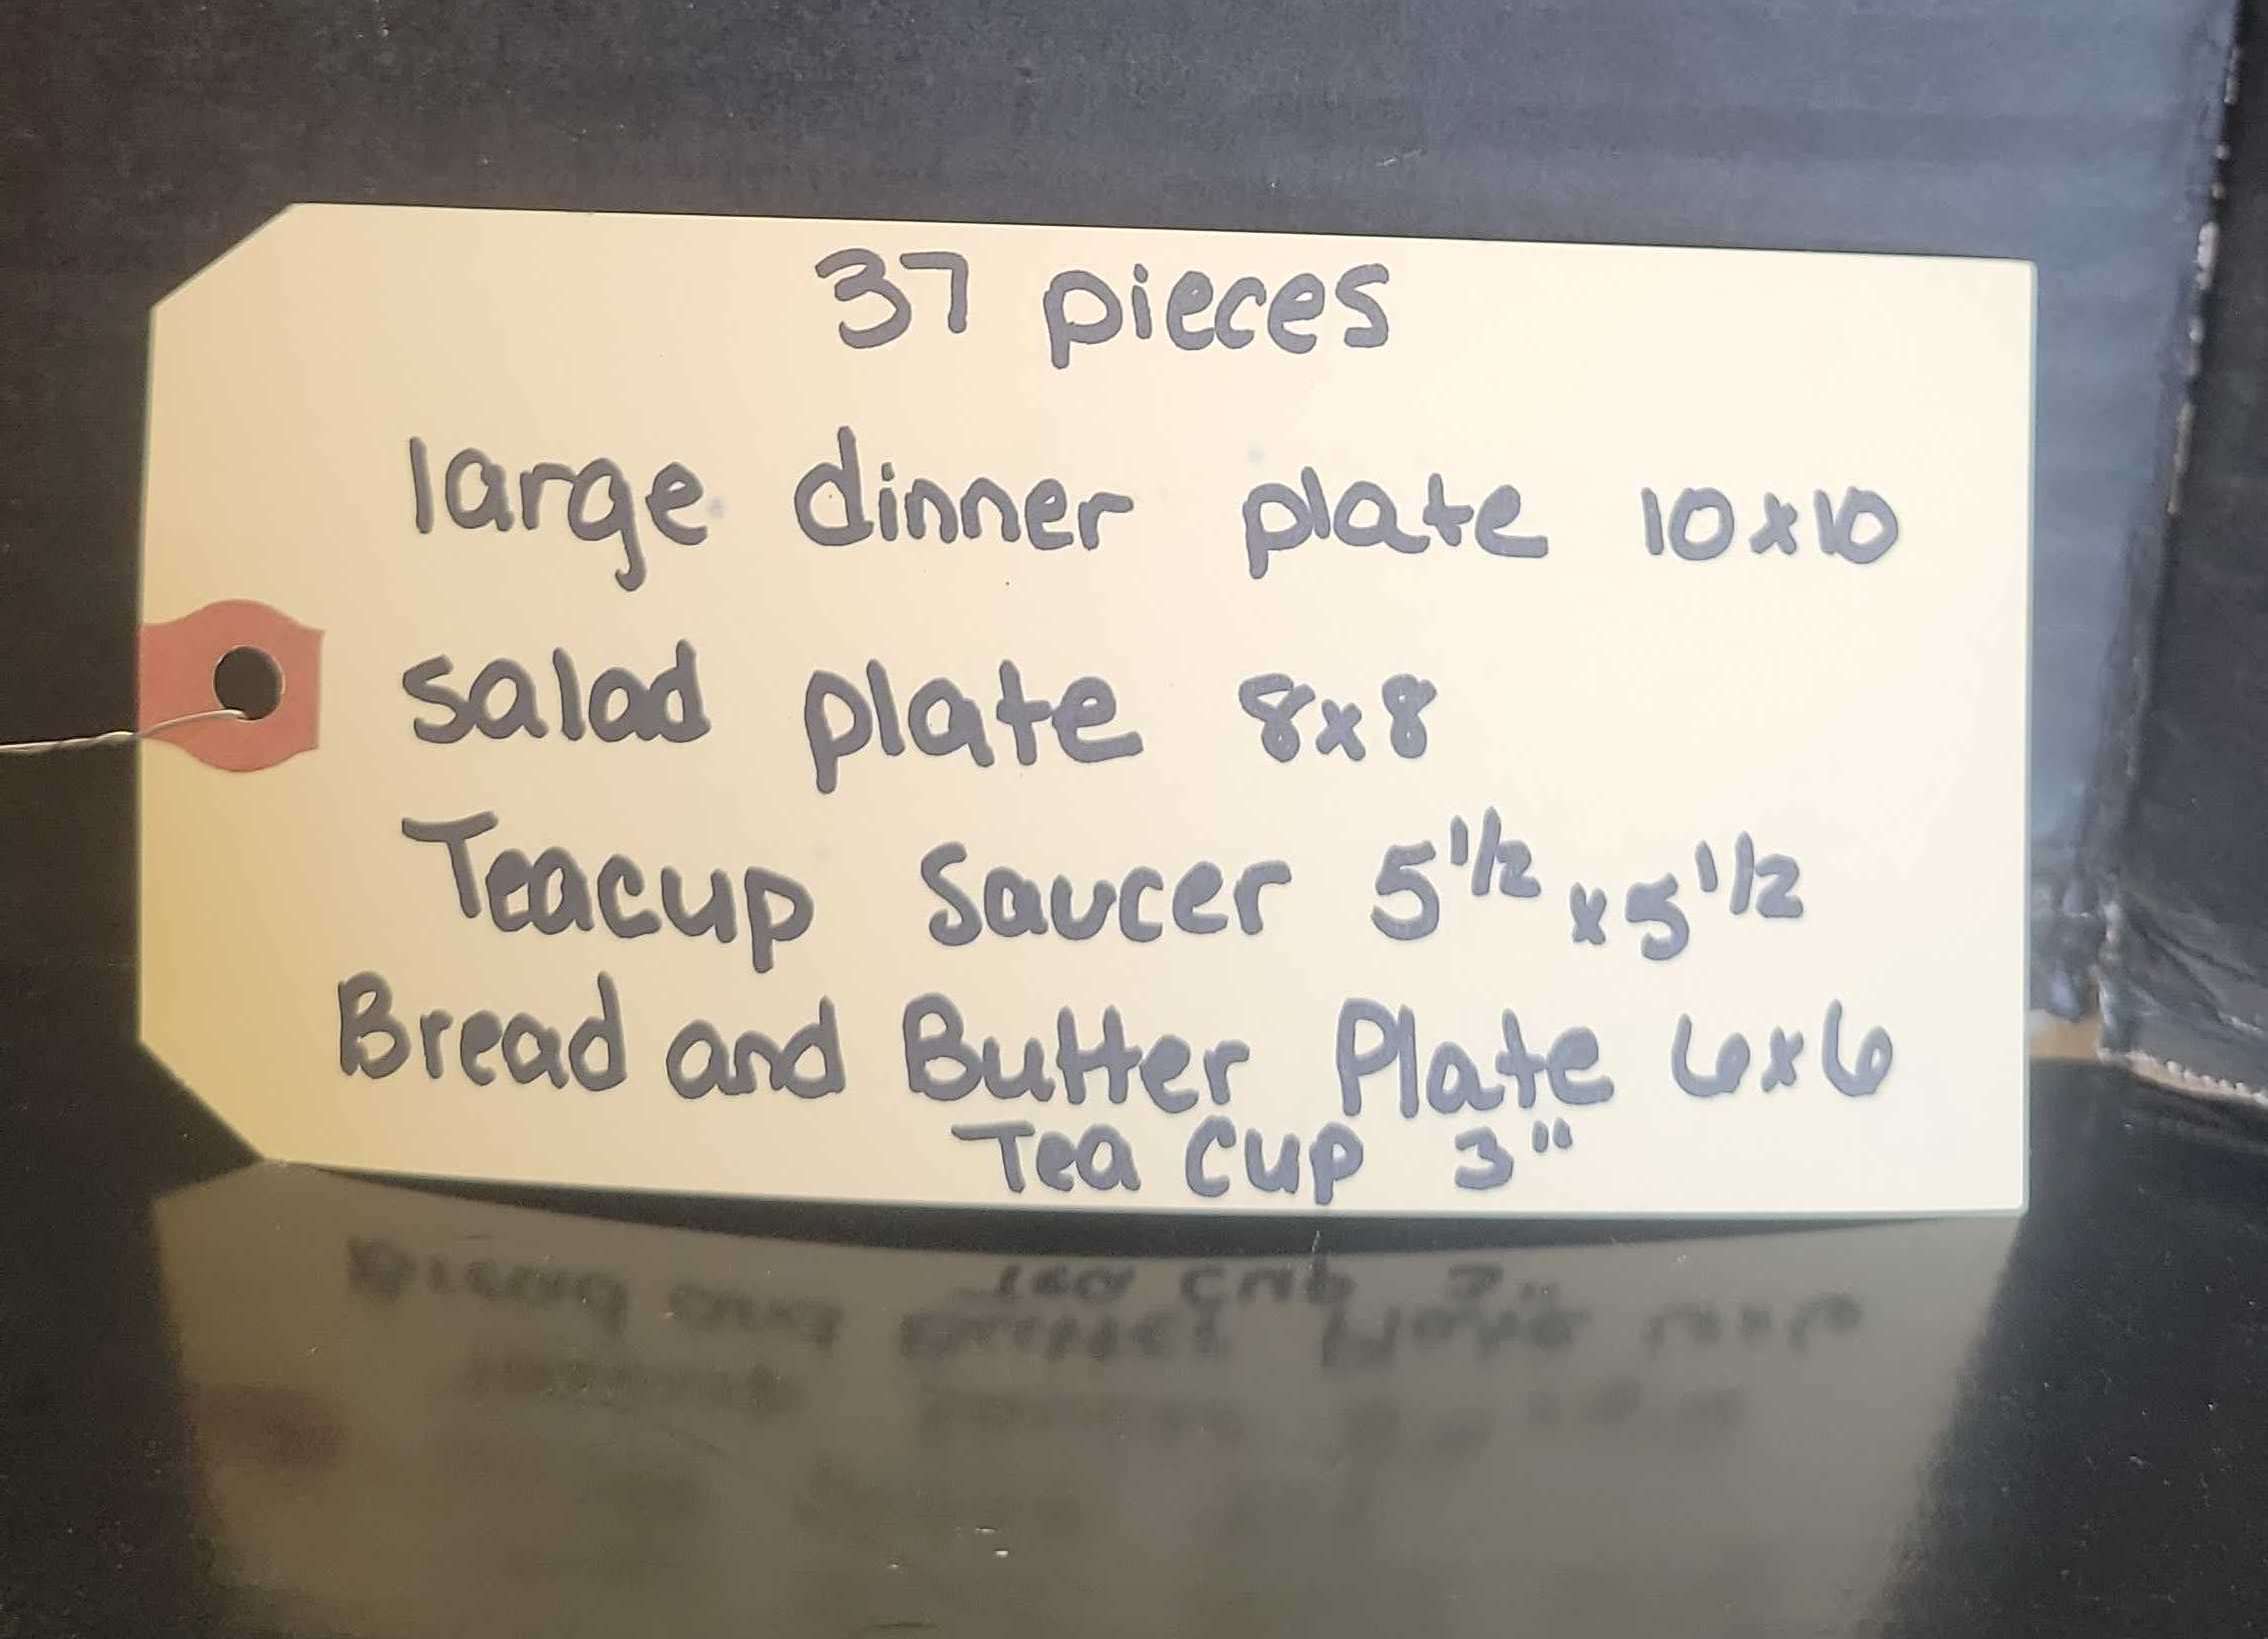 37 pieces
large dinner plate 10x10
salad plate 8x8
Teacup Saucer 5 1/2 x 5 1/2
Bread and Butter Plate 6x6
Tea Cup 3"